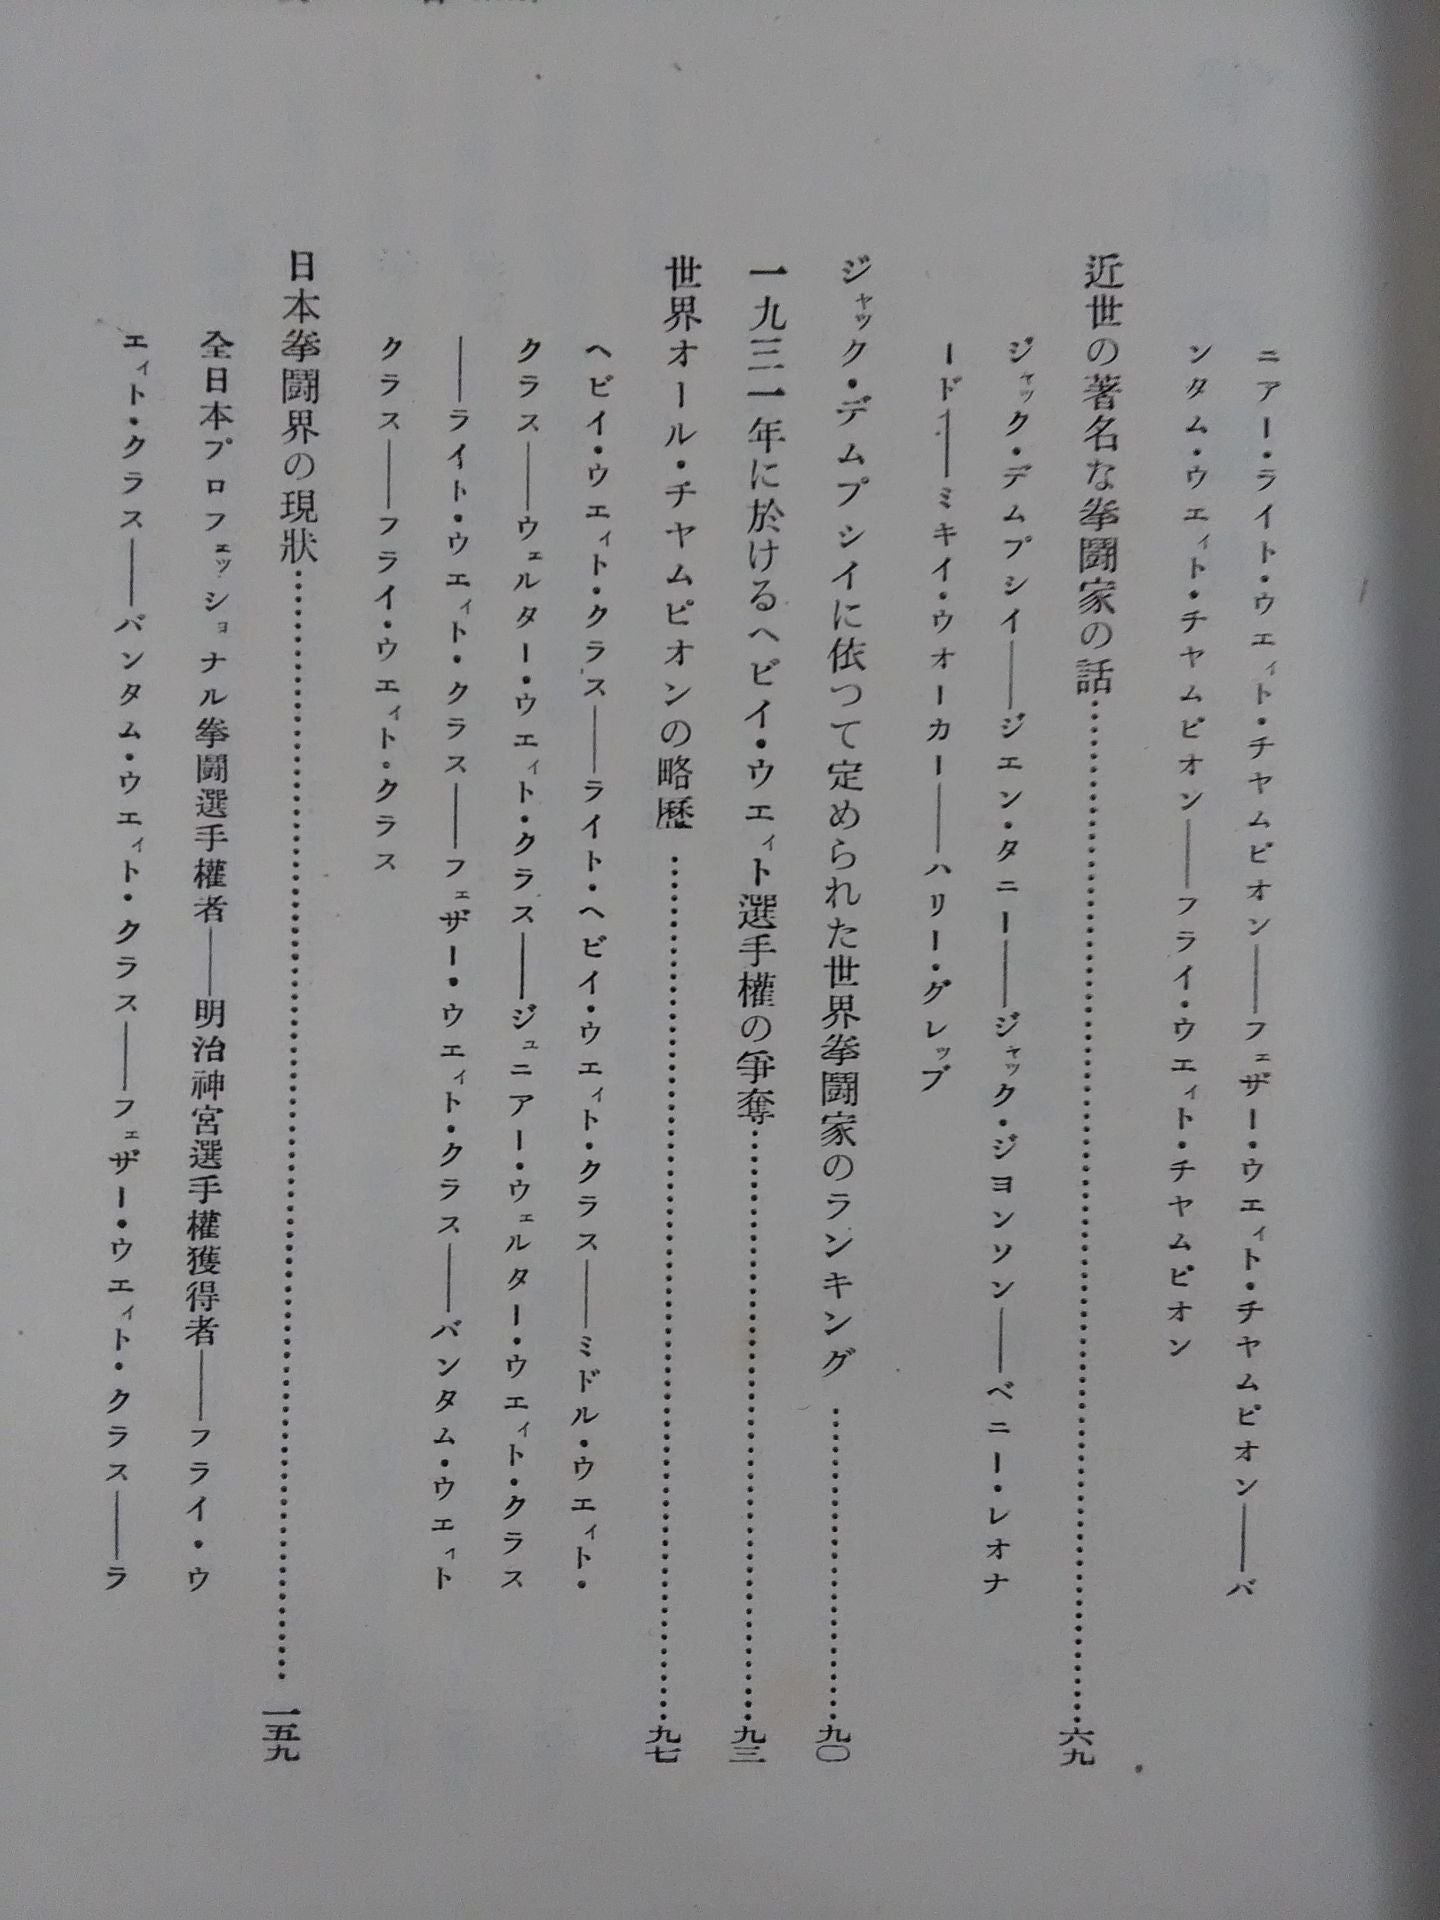 ニアー・ライト・ウエィト・チヤムピオン――フェザー・ウエィト・チヤムピオン――バ
ンタム・ウエィト・チヤムピオン――フライ・ウエィト・チヤムピオン
近世の著名な拳闘家の話……………………………………六九
ジャック・デムプシイ――ジエン・タニー――ジャック・ジヨンソン――ベニー・レオナ
ード――ミキイ・ウオーカー――ハリー・グレッブ
ジャック・デムプシイに依つて定められた世界拳闘家のランキング……………九〇
一九三一年に於けるヘビイ・ウエィト選手權の爭奪……………………九三
世界オール・チヤムピオンの略歷……………………………………九七
ヘビイ・ウエィト・クラス――ライト・ヘビイ・ウエィト・クラス――ミドル・ウエィト・
クラス――ウェルター・ウエィト・クラス――ジュニアー・ウェルター・ウエィト・クラス
――ライト・ウエィト・クラス――フェザー・ウエィト・クラス――バンタム・ウエィト
クラス――フライ・ウエィト・クラス
日本拳闘界の現狀……………………………………………一五九
全日本プロフェッショナル拳闘選手權者――明治神宮選手權獲得者――フライ・ウ
エィト・クラス――バンタム・ウエィト・クラス――フェザー・ウエィト・クラス――ラ